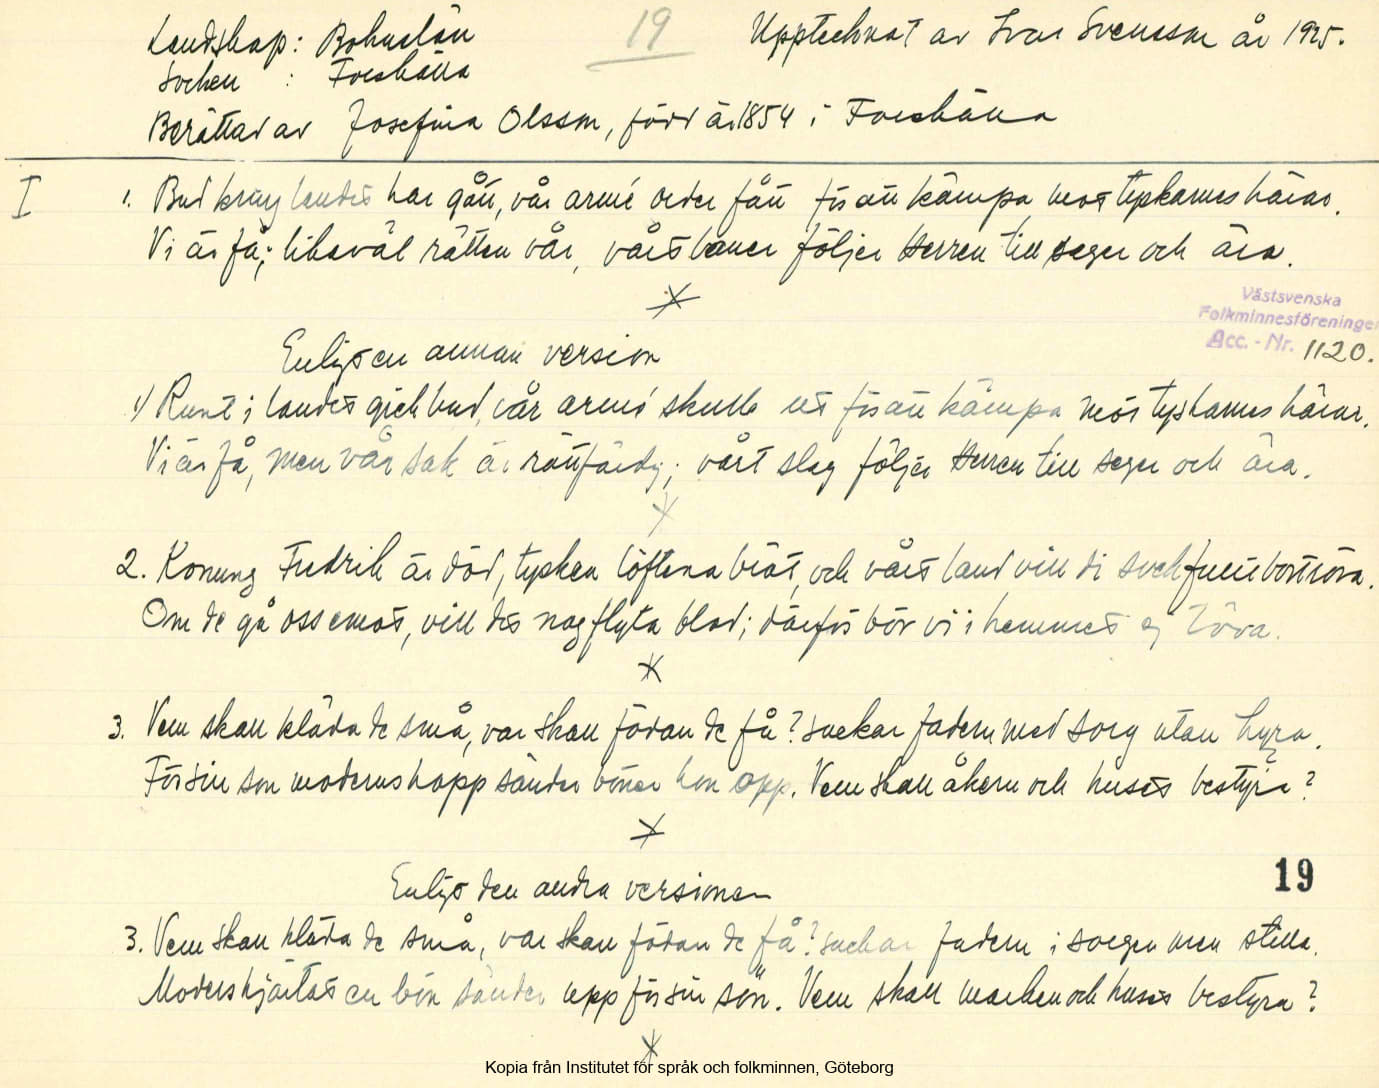 Landskap: Bohuslän
19
Upptecknat av Ivar Svensson år 1925.
Socken : Foeshälla
Berättad av Josefina Olsson, född år 1854 i Foeshälla
I
1. Bud kring landet har gått, vår armé order fått för att kämpa mot tyskarnes härar.
Vi är få; likaväl rätten vår, vårt baner följer Herren till seger och ära.
Västsvenska
Folkminnesföreningen
Acc. - Nr. 1120.
Enligt en annan version
1) Runt i landet gick bud, vår armé skulle ut för att kämpa mot tyskarnes härar.
Vi är få, men vår sak är rättfärdig; vårt slag följer Herren till seger och ära.
2. Konung Fredrik är död, tysken löftena bröt, och vårt land vill di svekfullt bortröva.
Om de gå oss emot, vill det nog flyta blod; därför bör vi i hemmet ej töva.
3. Vem skall kläda de små, var skall födan de få? suckar fadern med sorg utan hyra.
För sin son moderns hopp sänder böner hon opp. Vem skall åkern och huset bestyra?
19
Enligt den andra versionen
3. Vem skall kläda de små, var skall födan de få? suckar fadern i sorgen men stilla.
Modershjärtat en bön sänder upp för sin sön. Vem skall marken och huset bestyra?
Kopia från Institutet för språk och folkminnen, Göteborg